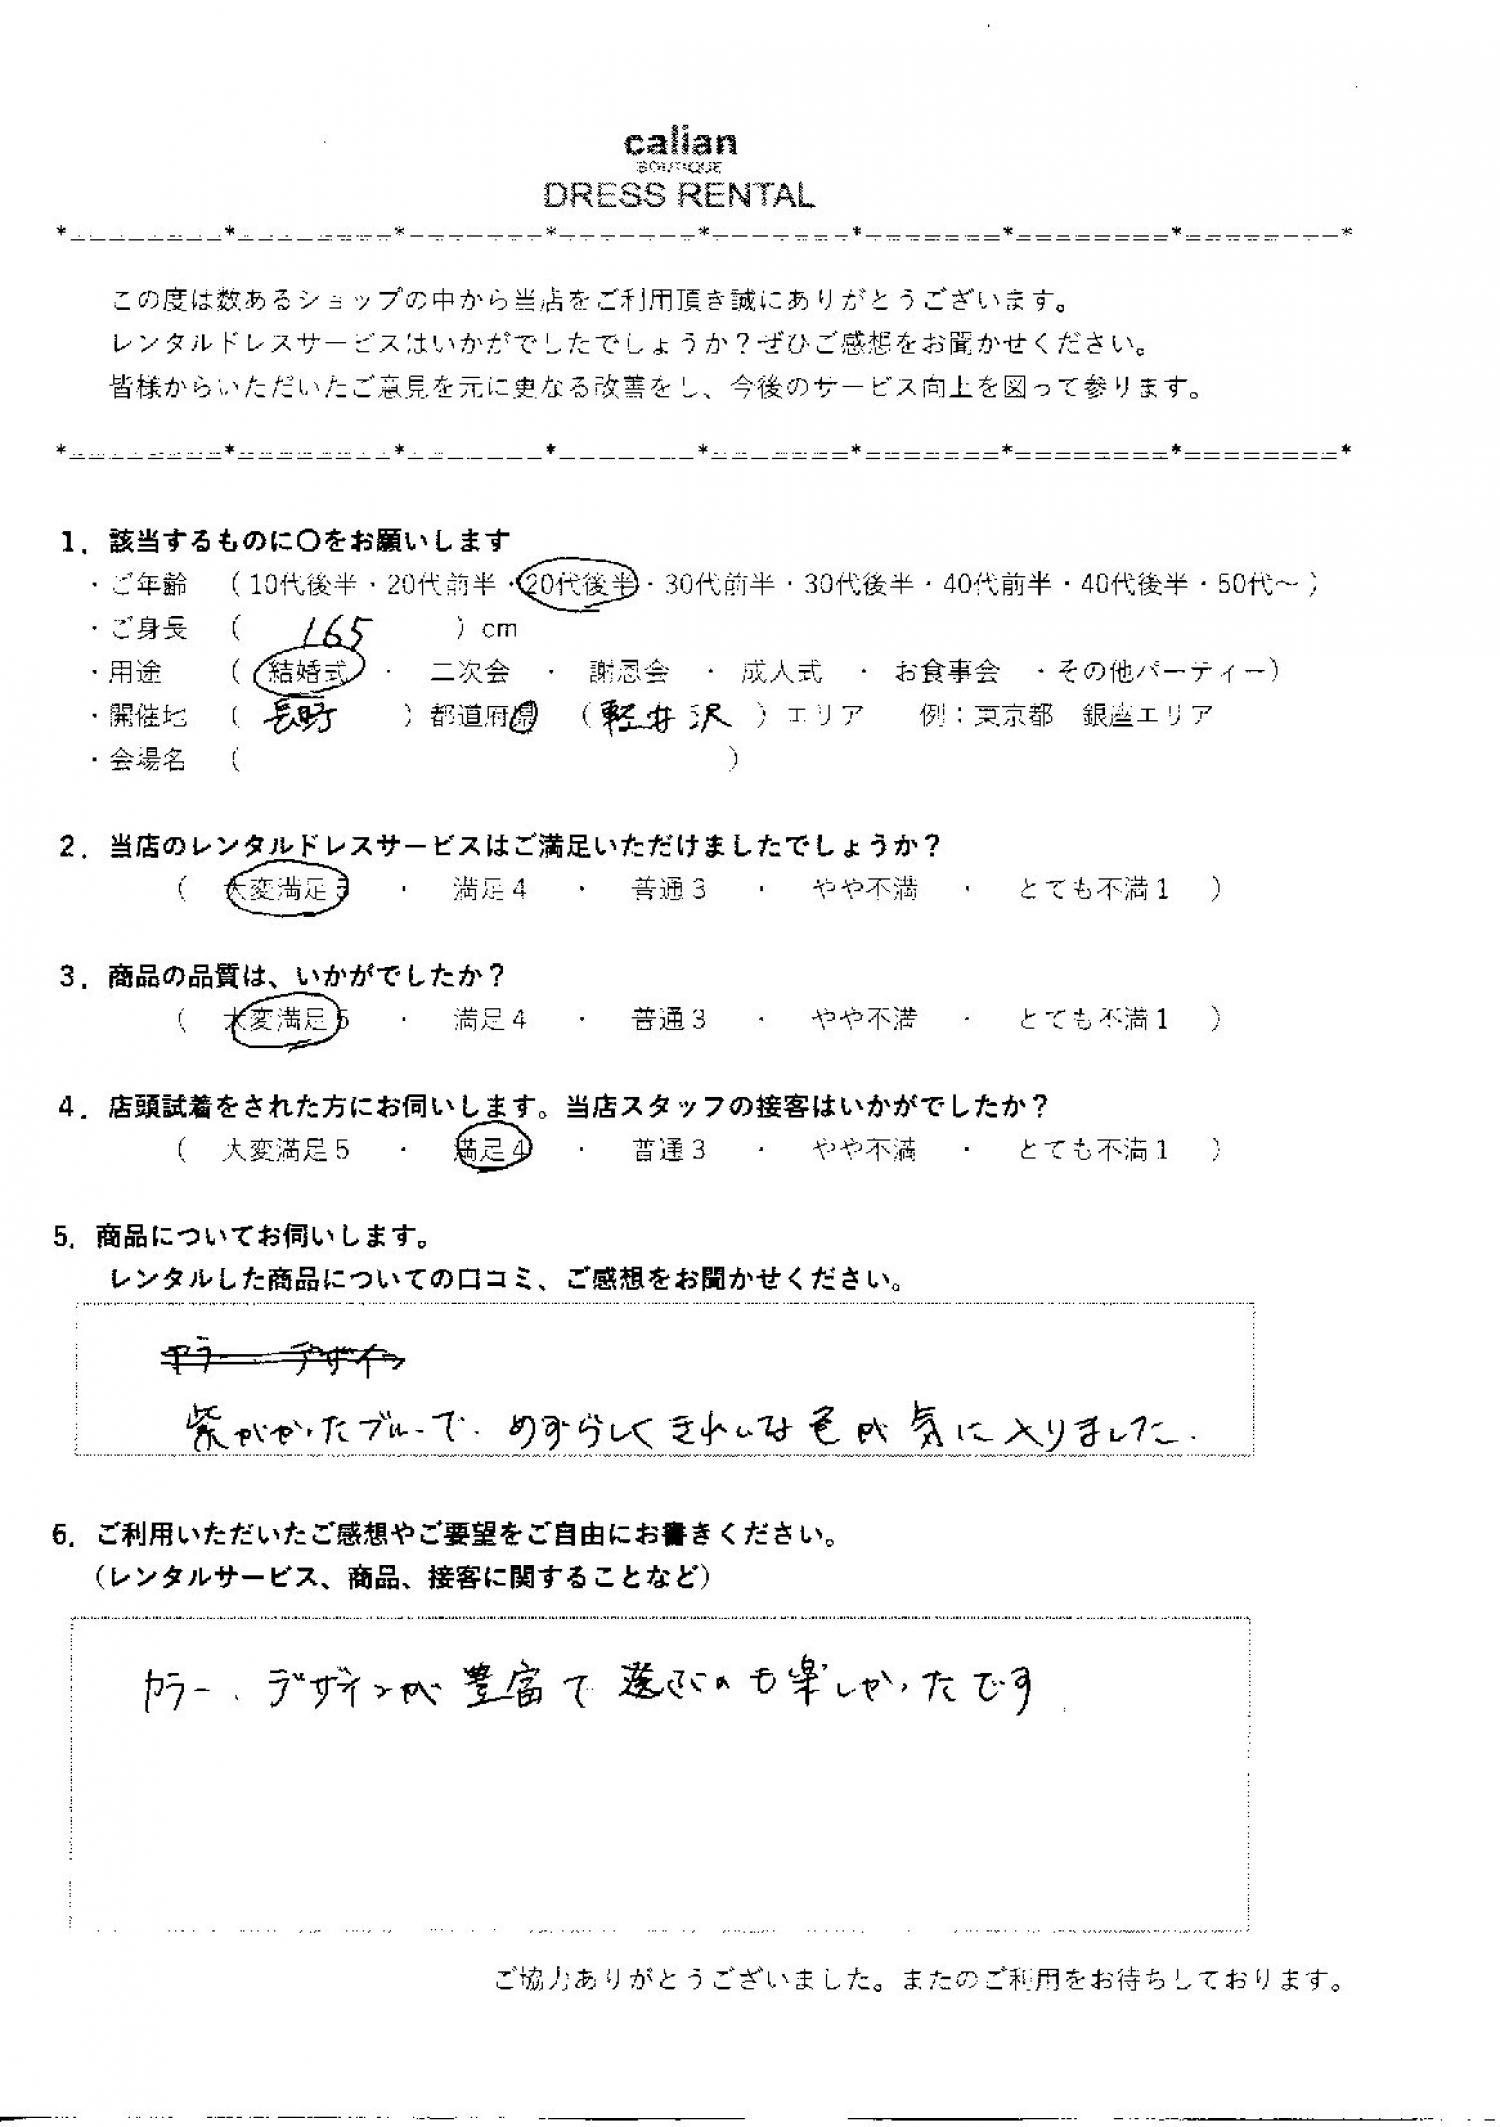 calian
BOUTIQUE
DRESS RENTAL
*========*========*=======*=======*=======*=======*========*========*
この度は数あるショップの中から当店をご利用頂き誠にありがとうございます。
レンタルドレスサービスはいかがでしたでしょうか？ぜひご感想をお聞かせください。
皆様からいただいたご意見を元に更なる改善をし、今後のサービス向上を図って参ります。
*========*========*=======*=======*=======*=======*========*========*
1．該当するものに〇をお願いします
・ご年齢 （10代後半・20代前半・20代後半・30代前半・30代後半・40代前半・40代後半・50代～）
・ご身長 （ 165 ）cm
・用途 （ 結婚式 ・ 二次会 ・ 謝恩会 ・ 成人式 ・ お食事会 ・その他パーティー）
・開催地 （ 長野 ）都道府県 （ 軽井沢 ）エリア 例：東京都 銀座エリア
・会場名 （ ）
2．当店のレンタルドレスサービスはご満足いただけましたでしょうか？
（ 大変満足5 ・ 満足4 ・ 普通3 ・ やや不満 ・ とても不満1 ）
3．商品の品質は、いかがでしたか？
（ 大変満足5 ・ 満足4 ・ 普通3 ・ やや不満 ・ とても不満1 ）
4．店頭試着をされた方にお伺いします。当店スタッフの接客はいかがでしたか？
（ 大変満足5 ・ 満足4 ・ 普通3 ・ やや不満 ・ とても不満1 ）
5．商品についてお伺いします。
レンタルした商品についての口コミ、ご感想をお聞かせください。
カラー デザイン
紫がかったブルーで、めずらしくきれいな色が気に入りました.
6．ご利用いただいたご感想やご要望をご自由にお書きください。
（レンタルサービス、商品、接客に関することなど）
カラー、デザインが豊富で選ぶのも楽しかったです
ご協力ありがとうございました。またのご利用をお待ちしております。